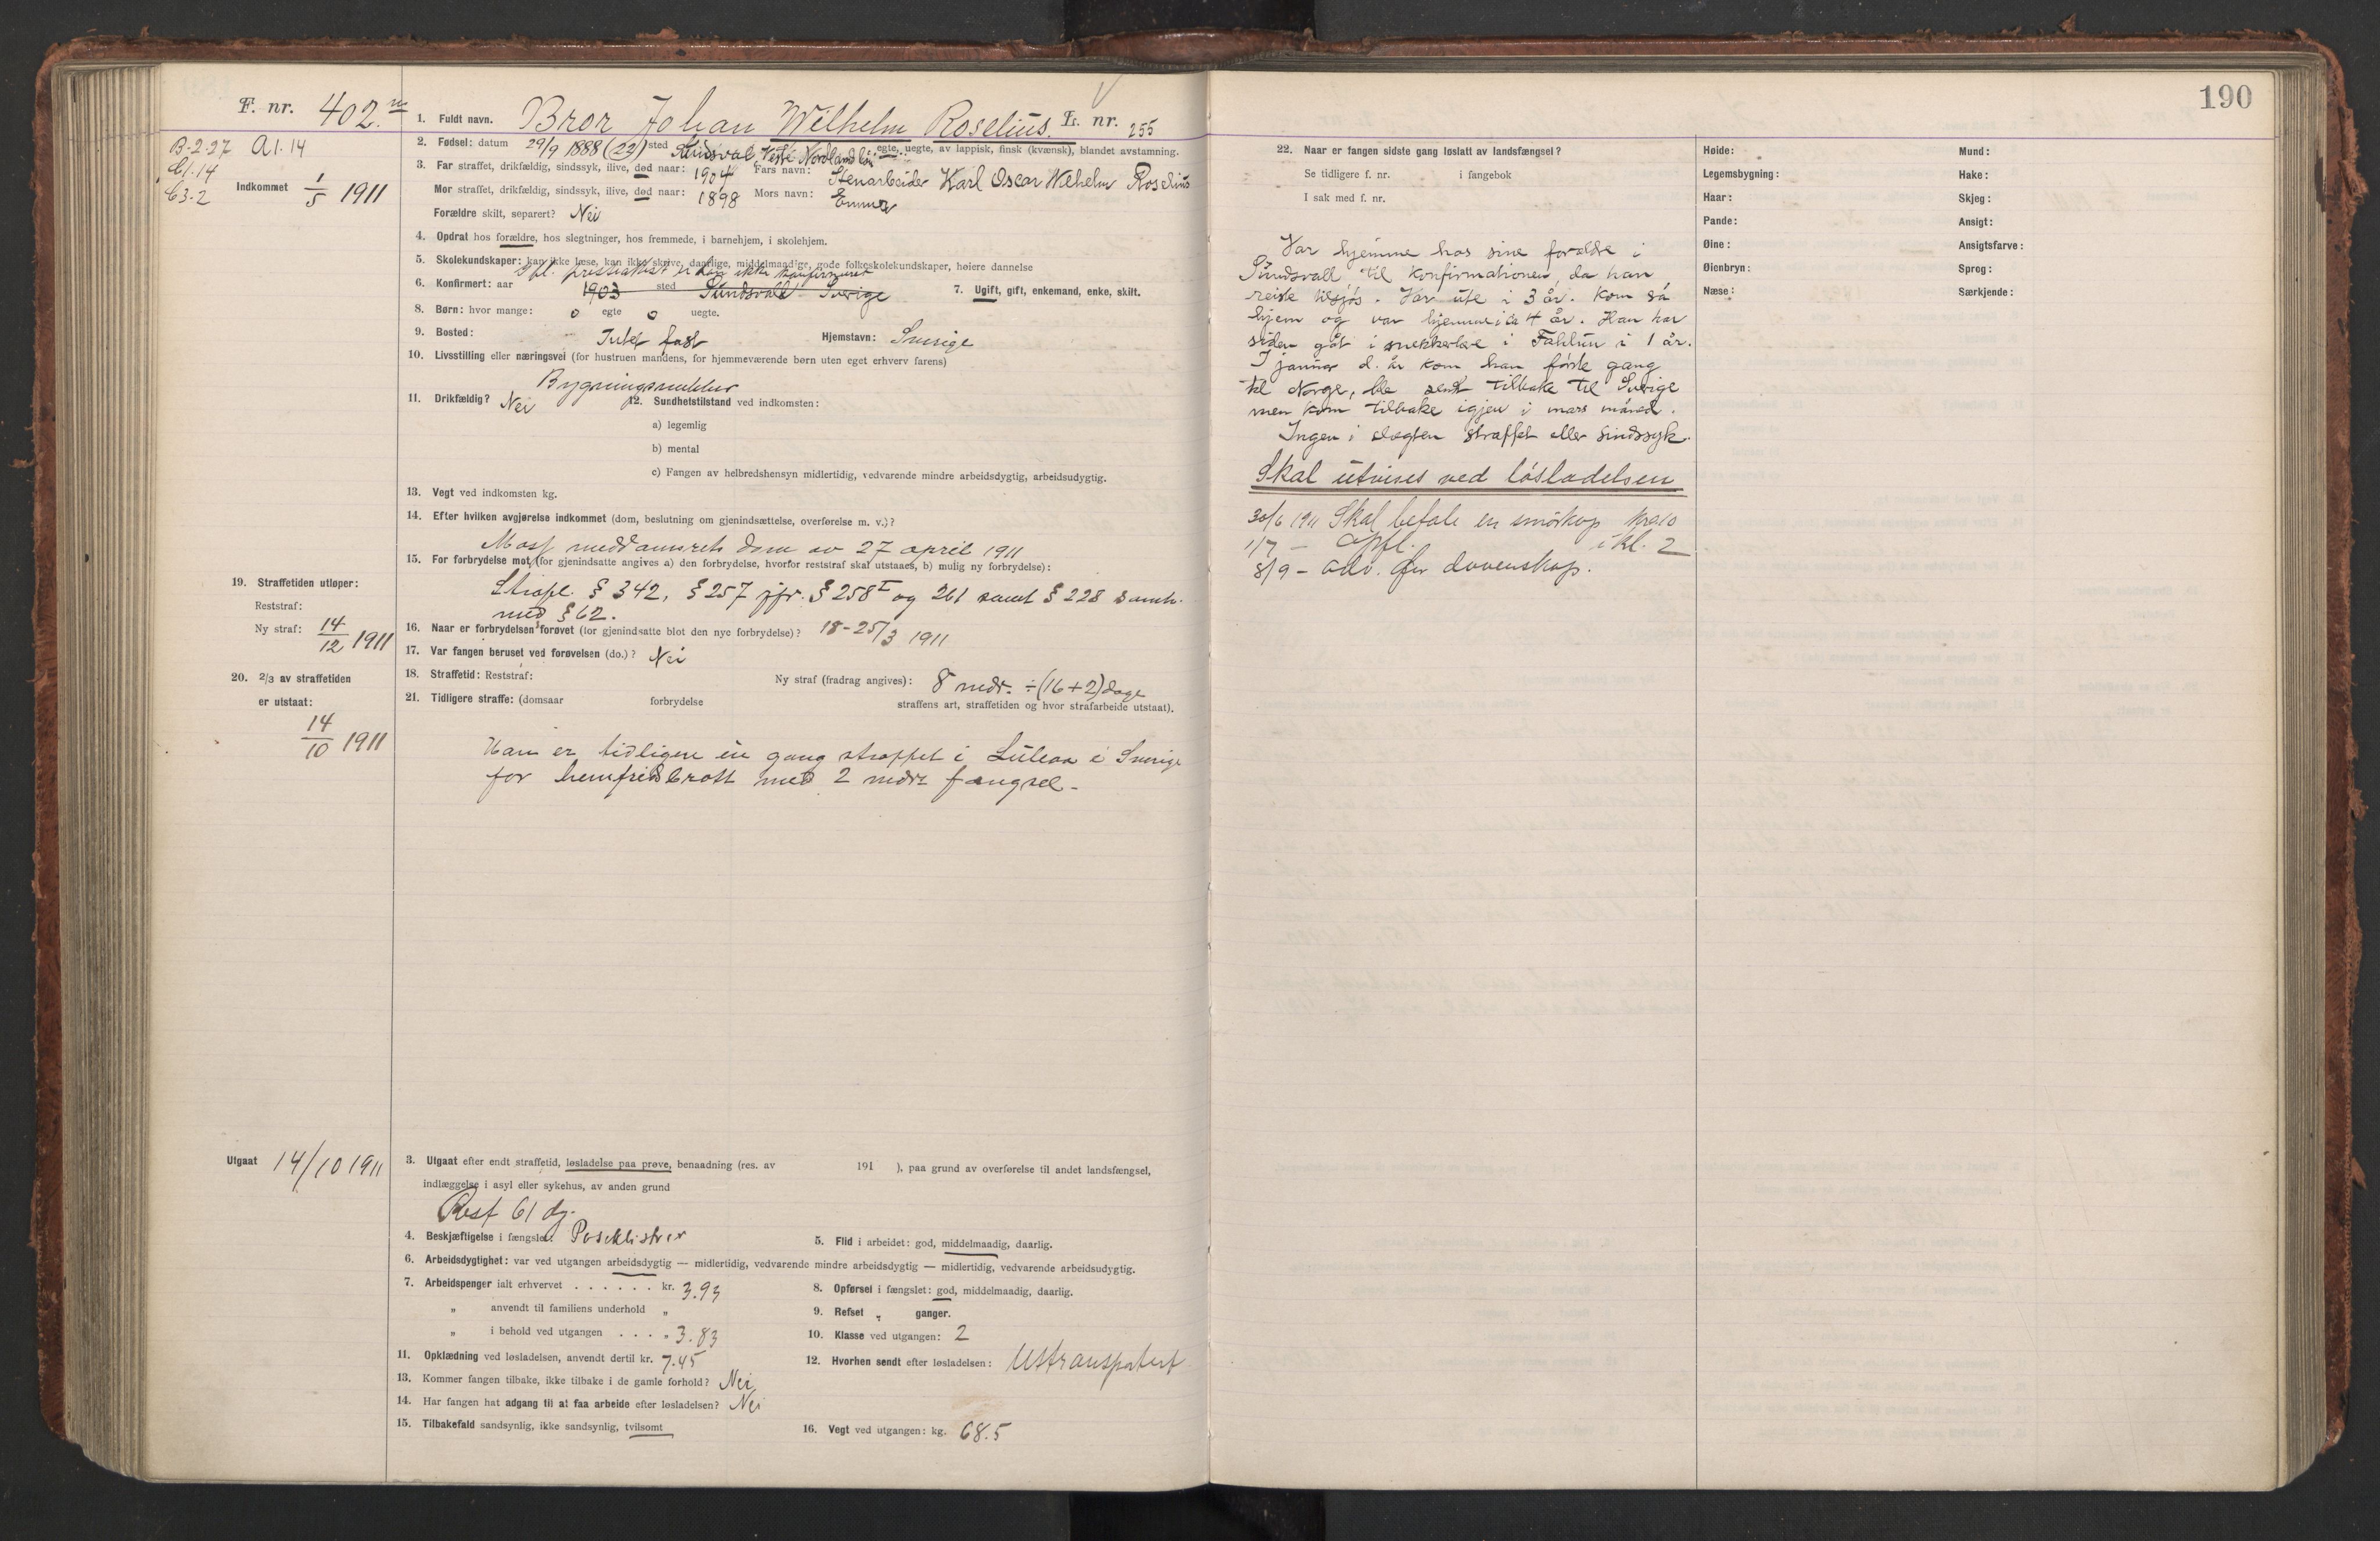 190
F. nr. 402.m
B-2-27 A1.14
C1.14
C3-2
Indkommet 1/5 1911
1. Fuldt navn. Bror Johan Wilhelm Roselius. L. nr. 255
2. Fødsel: datum 29/9 1888 (22) sted Sundsval, egte, uegte, av lappisk, finsk (kvænsk), blandet avstamning.
3. Far straffet, drikfældig, sindssyk, ilive, død naar: 1904 Fars navn: Stenarbeider Karl Oscar Wilhelm Roselius
Mor straffet, drikfældig, sindssyk, ilive, død naar: 1898 Mors navn: Emma
Forældre skilt, separert? Nei
4. Opdrat hos forældre, hos slegtninger, hos fremmede, i barnehjem, i skolehjem.
5. Skolekundskaper: kan ikke læse, kan ikke skrive, daarlige, middelmaadige, gode folkeskolekundskaper, høiere dannelse
ifl. prestattest er han ikke konfirmeret
6. Konfirmert: aar 1903 sted Sundsvald Sverige 7. Ugift, gift, enkemand, enke, skilt.
8. Børn: hvor mange: 0 egte 0 uegte.
9. Bosted: Intet fast Hjemstavn: Sverige
10. Livsstilling eller næringsvei (for hustruen mandens, for hjemmeværende børn uten eget erhverv farens)
Bygningssnekker
11. Drikfældig? Nei 12. Sundhetstilstand ved indkomsten:
a) legemlig
b) mental
c) Fangen av helbredshensyn midlertidig, vedvarende mindre arbeidsdygtig, arbeidsudygtig.
13. Vegt ved indkomsten kg.
14. Efter hvilken avgjørelse indkommet (dom, beslutning om gjenindsættelse, overførelse m. v.)?
Moss meddomsrets dom av 27 april 1911
15. For forbrydelse mot (for gjenindsatte angives a) den forbrydelse, hvorfor reststraf skal utstaaes, b) mulig ny forbrydelse):
Strafl. § 342, § 257 jfr. § 258 I og 261 samt § 228 samh.
med § 62.
16. Naar er forbrydelsen forøvet (for gjenindsatte blot den nye forbrydelse)? 18-25/3 1911
17. Var fangen beruset ved forøvelsen (do.)? Nei
18. Straffetid: Reststraf: Ny straf (fradrag angives): 8 mdr. ÷(16+2) dage
19. Straffetiden utløper:
Reststraf:
Ny straf: 14/12 1911
20. 2/3 av straffetiden
er utstaat:
14/10 1911
21. Tidligere straffe: (domsaar forbrydelse straffens art, straffetiden og hvor strafarbeide utstaat).
Han er tidligere én gang straffet i Luleaa i Sverige
for hemfridsbrott med 2 mdrs fængsel.
Utgaat 14/10 1911
3. Utgaat efter endt straffetid, løsladelse paa prøve, benaadning (res. av 191 ), paa grund av overførelse til andet landsfængsel,
indlæggelse i asyl eller sykehus, av anden grund
Rest 61 dg.
4. Beskjæftigelse i fængslet: Poseklistrer 5. Flid i arbeidet: god, middelmaadig, daarlig.
6. Arbeidsdygtighet: var ved utgangen arbeidsdygtig — midlertidig, vedvarende mindre arbeidsdygtig — midlertidig, vedvarende arbeidsudygtig.
7. Arbeidspenger ialt erhvervet . . . . . . kr. 3.93 8. Opførsel i fængslet: god, middelmaadig, daarlig.
„ anvendt til familiens underhold „ 9. Refset „ ganger.
„ i behold ved utgangen . . . . „ 3.83 10. Klasse ved utgangen: 2
11. Opklædning ved løsladelsen, anvendt dertil kr. 7.45 12. Hvorhen sendt efter løsladelsen: Uttransportert
13. Kommer fangen tilbake, ikke tilbake i de gamle forhold? Nei
14. Har fangen hat adgang til at faa arbeide efter løsladelsen? Nei
15. Tilbakefald sandsynlig, ikke sandsynlig, tvilsomt 16. Vegt ved utgangen: kg. 68.5
22. Naar er fangen sidste gang løslatt av landsfængsel?
Se tidligere f. nr. i fangebok
I sak med f. nr.
Var hjemme hos sine forældre i
Sundsvall til konfirmationen, da han
reiste tilsjøs. Var ute i 3 år. Kom så
hjem og var hjemme i ca 4 år. Han har
siden gåt i snekkerlære i Fahlun i 1 år.
I januar d. år kom han første gang
til Norge, ble sendt tilbake til Sverige
men kom tilbake igjen i mars måned.
Ingen i slægten straffet eller sindssyk.
Skal utvises ved løsladelsen
30/6 1911 Skal betale en smörkop kr 0.10
1/7 – Opfl. i kl. 2
8/9 – Adv. for dovenskap.
Høide:
Legemsbygning:
Haar:
Pande:
Øine:
Øienbryn:
Næse:
Mund:
Hake:
Skjeg:
Ansigt:
Ansigtsfarve:
Sprog:
Særkjende: